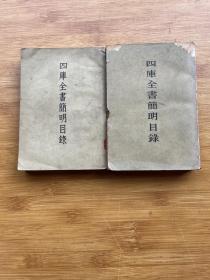 四庫全書簡明目錄
四庫全書簡明目錄